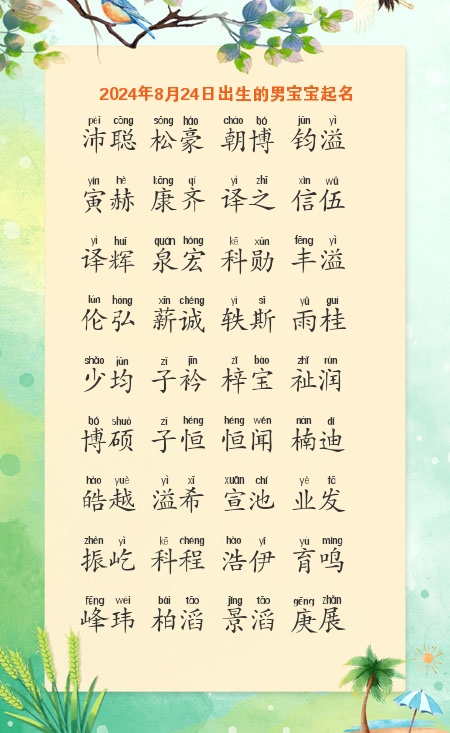 2024年8月24日出生的男宝宝起名
pèi cōng sōng háo cháo bó jūn yì
沛聪 松豪 朝博 钧溢
yín hè kāng qí yì zhī xìn wǔ
寅赫 康齐 译之 信伍
yì huī quán hóng kē xūn fēng yì
译辉 泉宏 科勋 丰溢
lún hóng xīn chéng yì sī yǔ guì
伦弘 薪诚 轶斯 雨桂
shǎo jūn zǐ jīn zǐ bǎo zhǐ rùn
少均 子衿 梓宝 祉润
bó shuò zǐ héng héng wén nán dí
博硕 子恒 恒闻 楠迪
hào yuè yì xī xuān chí yè fā
皓越 溢希 宣池 业发
zhèn yì kē chéng hào yī yù míng
振屹 科程 浩伊 育鸣
fēng wěi bǎi tāo jǐng tāo gēng zhǎn
峰玮 柏滔 景滔 庚展